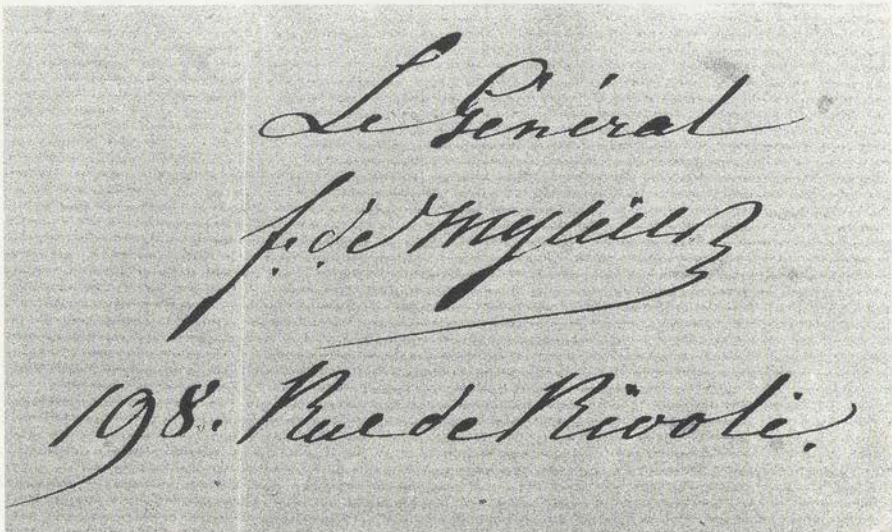 Le Général
f. de Mylius
198. Rue de Rivoli.